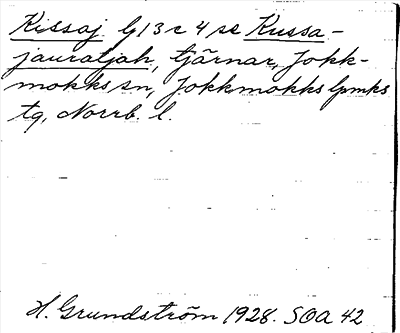 Kissaj G13c4 se Kussa-
jauratjah, tjärnar, Jokk-
mokks sn, Jokkmokks lpmks
tg, Norrb. l.
H. Grundström 1928. SOA 42